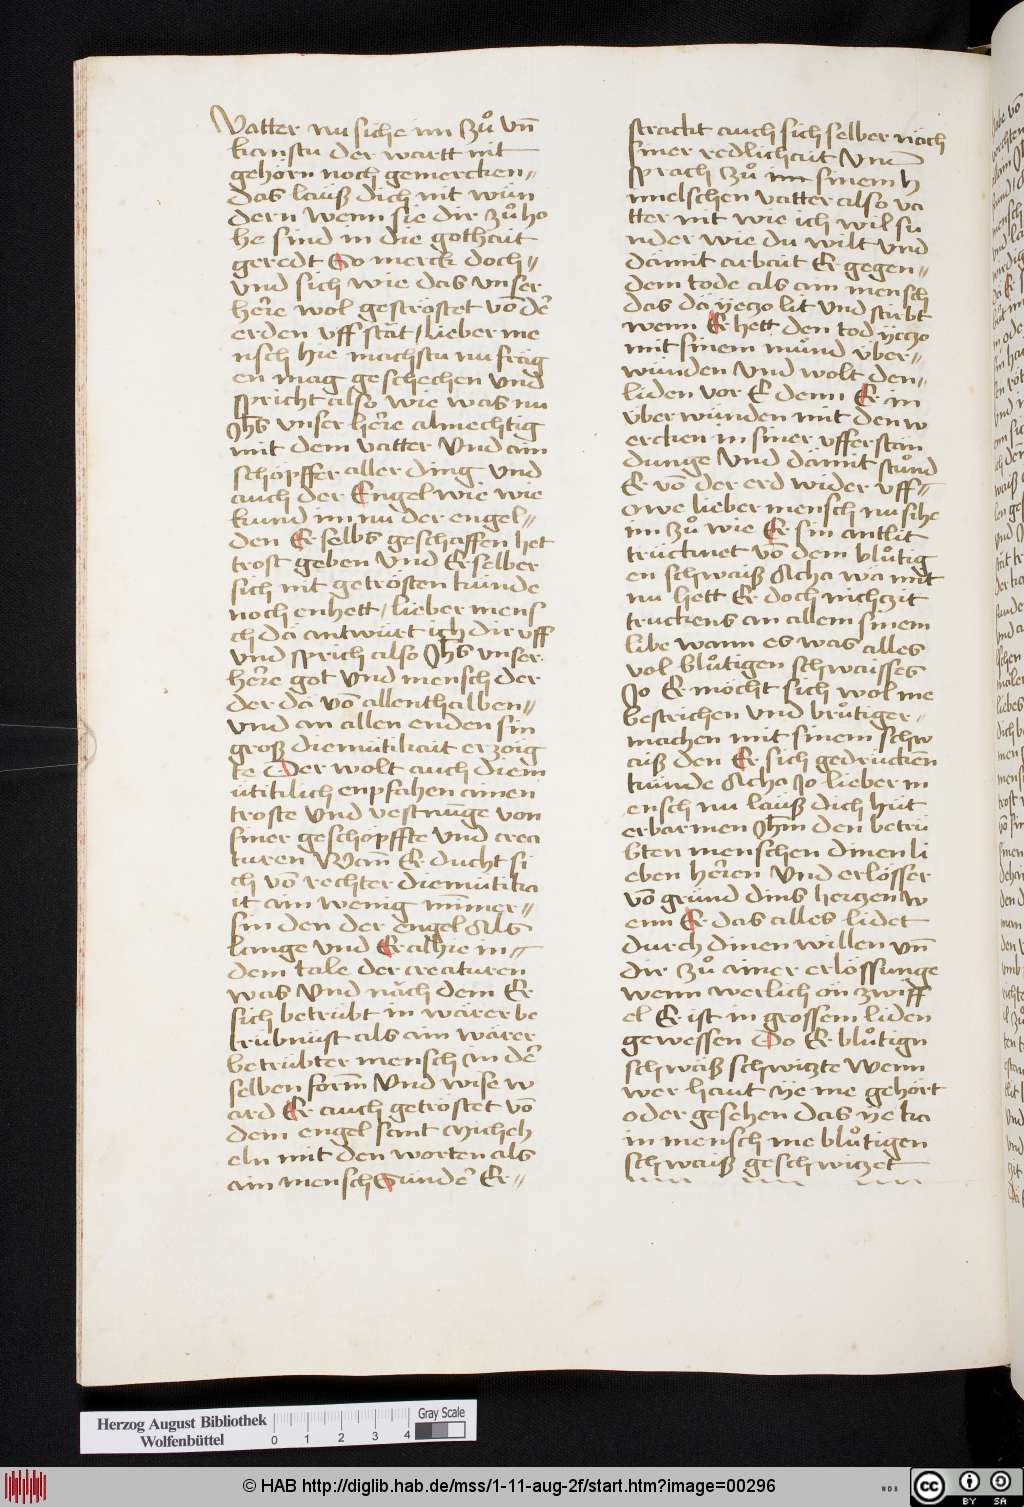 Vatter nu siche im zuͦ vn̄
kanstu der wartt nit
gehörn noch gemercken〃
das lauß dich nit wun
dern wenn sie dir zuͦ ho
he sind in die gothait
geredt So merck doch〃
vnd sich wie das vnser
her̄e wol geströstet vō der̄
erden vff stāt / lieber me
nsch hie machstu nu fräg
en mag geschechen vnd
spricht also wie was nu
Jhs̄ vnser her̄e almechtig
mit dem vatter vnd ain
schöpffer aller ding vnd
auch der Engel wie wie
kund im nu der engel〃
den Er selbs geschaffen het
trost geben vnd Er selber
sich nit getrösten kunde
noch enhett / lieber mens
ch da antwürt ich dir vff
vnd sprich also Jhs̄ vnser
her̄e got vnd mensch der
der da vō allenthalben〃
vnd an allen enden sin
groß diemütikait erzöig
te Der wolt auch diem
ütiklich enpfahen ainen
troste vnd vestnūge von
siner geschopffte vnd crea
turen Wan̄ Er ducht si
ch vō rechter diemütika
it ain wenig mīner〃
sin den der engel Als
lange vnd Er alhie in〃
dem tale der creaturen
was vnd nāch dem Er
sich betrübt in wärer be
trübnüst als ain wärer
betrübter mensch an der̄
selben form̄ vnd wise w
ard Er auch getröstet vō
dem engel sant Micheh
eln mit den worten als
ain mensch Sunder̄ Er〃
strackt auch sich selber nāch
siner redlichait vnd
sprach zuͦ im sinem h
imelschen vatter also va
tter nit wie ich wil su
nder wie du wilt vnd
dāmit arbait Er gegen〃
dem tode als ain mensch
das dā yeczo lit vnd stirbt
wenn Er hett den tod yeczo
mit sinem mund vber〃
wunden vnd wolt den〃
liden vor E denn Er in
vber wunden mit den w
ercken in siner vfferstan
dunge vnd dāmit stuͦnd
Er vō der erd wider vff〃
owe lieber mensch nu sihe
im zuͦ wie Er sin antlit
trücknet vō dem bluͦtig
en schwaiß Acha wā mit
nu hett Er doch nichczit
truckens an allem sinem
libe wann es was alles
vol bluͦtigen schwaisses
Jo Er möcht sich wol me
bestrichen vnd bruͦtiger〃
machen mit sinem schw
aiß den Er sich gedrücken̄
kunde Acha Jo lieber m
ensch nu lauß dich hüt
erbarmen Jhm̄ den betrü
bten menschen dinen li
eben her̄en vnd erlösser
vō grund dins herczen w
enn Er das alles lidet
durch dinen willen vn̄
dir zuͦ ainer erlössunge
wenn werlich ön zwiff
el Er ist in grossem liden
gewessen Do Er bluͦtign
schwaiß schwiczte wenn
wer haut ye me gehört
oder gesehen das ye ka
in mensch me bluͦtigen
schwaiß geschwiczet
Herzog August Bibliothek
Wolfenbüttel
0 1 2 3 4
Gray Scale
© HAB http://diglib.hab.de/mss/1-11-aug-2f/start.htm?image=00296
WDB
cc BY SA